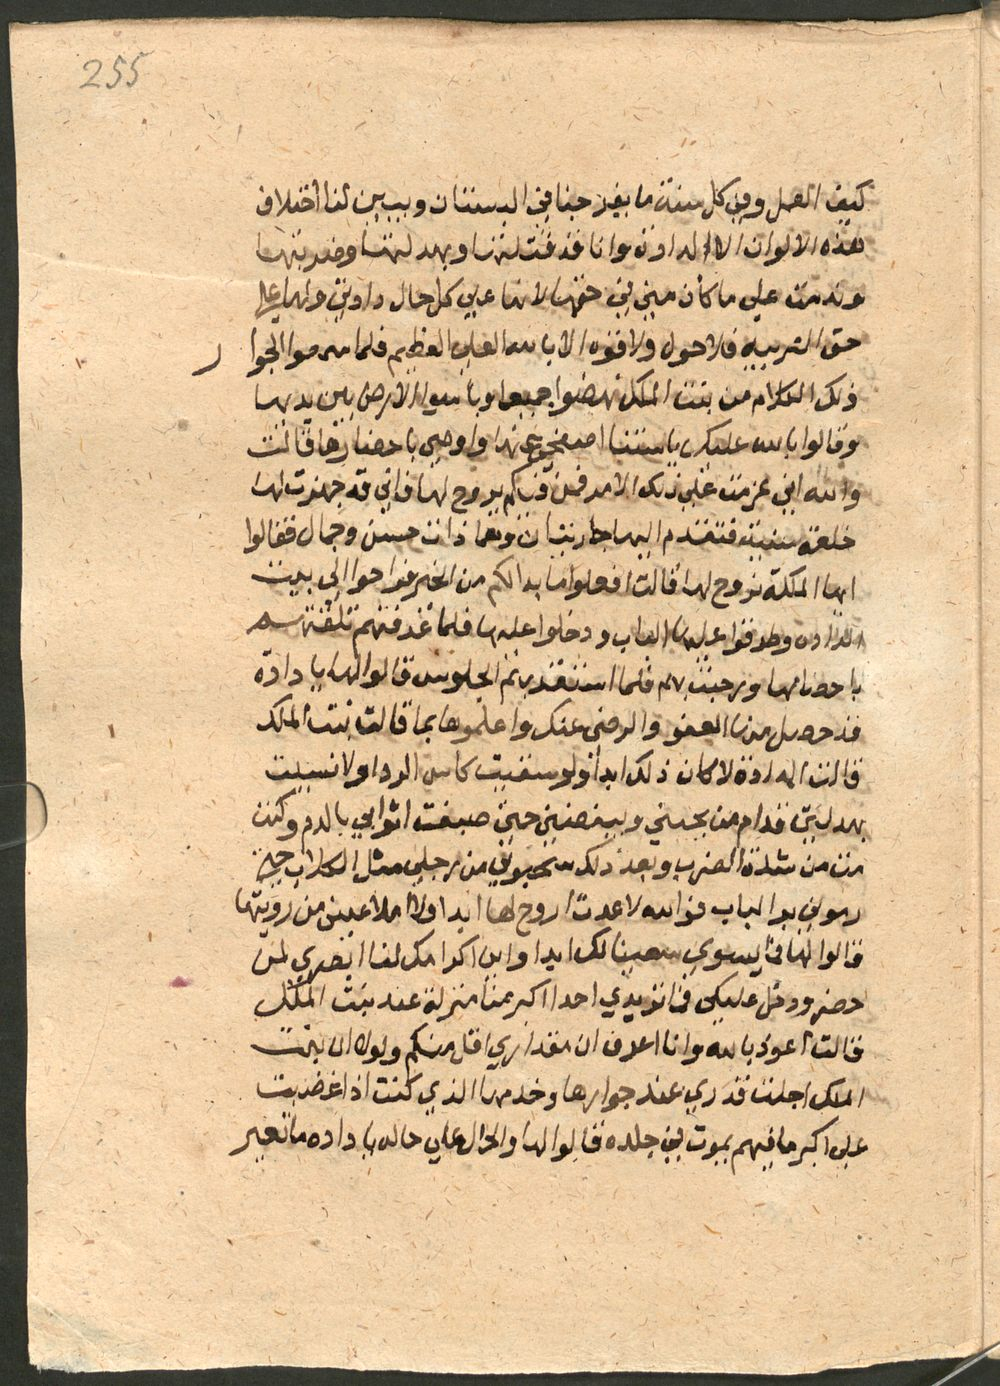 255
كيف العمل وفي كل سنة ما يفرجنا في البستان ويبين لنا اختلاف
هذه الالوان الا الدادة وانا قد قتلتها وبهدلتها وضربتها
وندمت علي ما كان مني في حقها لانها علي كل حال دادتي ولها علي
حق التربية فلا حول ولا قوة الا بالله العلي العظيم فلما سمعوا الجوار
ذلك الكلام من بنت الملك نهضوا جميعا وباسوا الارض بين يديها
وقالوا بالله عليكي يا ستنا اصفحي عنها وأوصي باحضارها قالت
والله اني عزمت علي ذلك الامر فمن فيكم يروح لها فاني قد جهزت لها
خلعة سنية فتقدم اليها جاريتان وهما ذات حسن وجمال فقالوا
ايها الملكة نروح لها قالت افعلوا ما بدا لكم من الخير فراحوا الي بيت
الداده وطرقوا عليها الباب ودخلوا عليها فلما عرفتهم تلقتهم
باحضانها ورحبت بهم فلما استقر بهم الجلوس قالوا لها يا دادة
قد حصل منها العفو والرضي عنك واعلموها بما قالت بنت الملك
قالت الدادة لا كان ذلك ابدا ولو سقيت كاس الردا ولا نسيت
بهدلتي قدام من يحبني ويبغضني حين صبغت اثوابي بالدم وكنت
مت من شدة الضرب وبعد ذلك سحبوني من رجلي مثل الكلاب حتي
رموني برا الباب فوالله لا عدت اروح لها ابدا ولا املا عيني من رويتها
قالوا لها في يسوي سعينا لك ابدا واين اكرامك لنا ابصري لمن
حضر ودخل عليكي فما تريدي احدا اكبر منا منزلة عند بنت الملك
قالت اعوذ بالله وانا اعرف ان مقداري اقل منكم ولولا ان بنت
الملك اجلت قدري عند جوارها وخدمها الذي كنت اذا غضبت
علي اكبر ما فيهم يموت في جلده فقالوا لها والحال علي حاله يا داده ما تغير